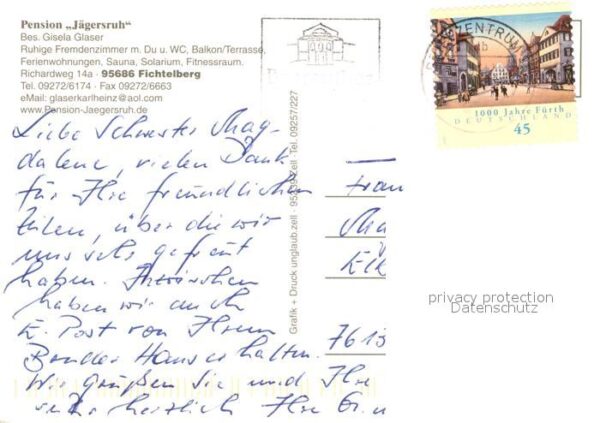 Pension „Jägersruh“
Bes. Gisela Glaser
Ruhige Fremdenzimmer m. Du u. WC, Balkon/Terrasse,
Ferienwohnungen, Sauna, Solarium, Fitnessraum.
Richardweg 14a · 95686 Fichtelberg
Tel. 09272/6174 · Fax 09272/6663
eMail: glaserkarlheinz@aol.com
www.Pension-Jaegersruh.de
Liebe Schwester Mag-
dalene, vielen Dank
für Ihre freundlichen
Zeilen, über die wir
uns sehr gefreut
haben. Inzwischen
haben wir auch
E. Post von Ihrem
Bruder Hans erhalten.
Wir grüßen Sie und Ihre
sehr herzlich Ihre
Grafik + Druck unglaub.zell · Zell · Tel. 09257/227
BRIEFZENTRUM
1000 Jahre Fürth
DEUTSCHLAND
45
Frau
Ma
7613
privacy protection
Datenschutz